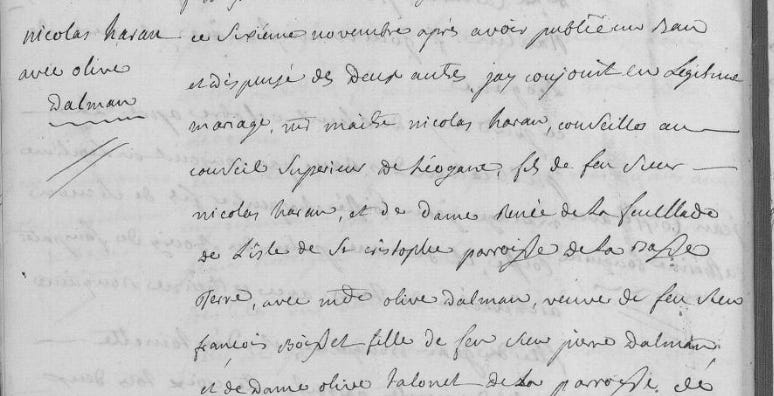 nicolas haran
avec olive
Dalman
ce Sixiéme novembre aprés avoir publié un Ban
et dispensé des Deux autres, jay conjoint en Legitime
mariage, mr maitre nicolas haran, conseiller au
conseil Superieur de Léogane, fils de feu Sieur
nicolas haran, et de Dame Renée de La feuillade
de L'isle de St cristophe parroisse de La Basse
Terre, avec mde olive Dalman, veuve de feu Sieu
françois et fille de feu Sieu pierre Dalman
et de Dame olive talonet de La parroisse de